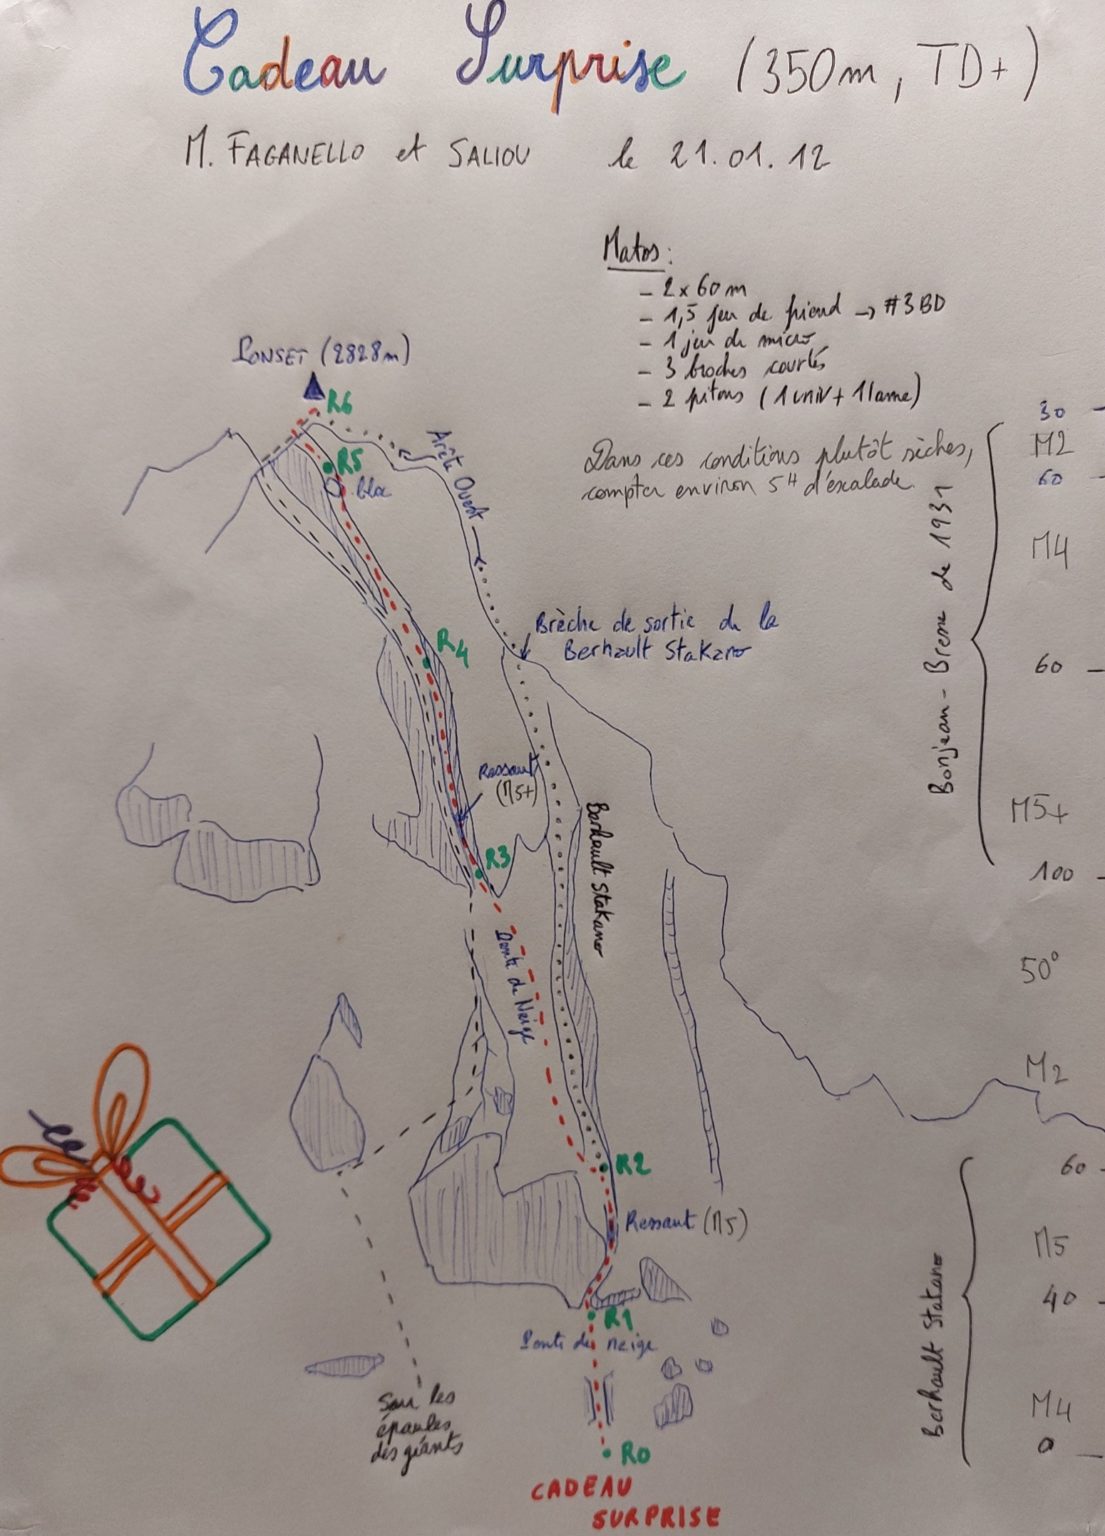 Cadeau Surprise (350m, TD+)
M. FAGANELLO et SALIOU le 21.01.12
Matos :
- 2x60m
- 1,5 jeu de friend -> #3BD
- 1 jeu de micro
- 3 broches courtes
- 2 pitons (1 univ + 1 lame)
Dans ces conditions plutôt sèches,
compter environ 5H d'escalade.
PONSET (2828m)
R6
R5
bloc
Arête Ouest
R4
Brèche de sortie de la
Berhault Stakano
Ressaut
(M5+)
R3
Pente de Neige
Berhault Stakano
R2
Ressaut (M5)
R1
Pente de neige
Sur les
épaules
des géants
R0
CADEAU
SURPRISE
Bonjean - Breme de 1931
Berhault Stakano
30
M2
60
M4
60
M5+
100
50°
M2
60
M5
40
M4
0